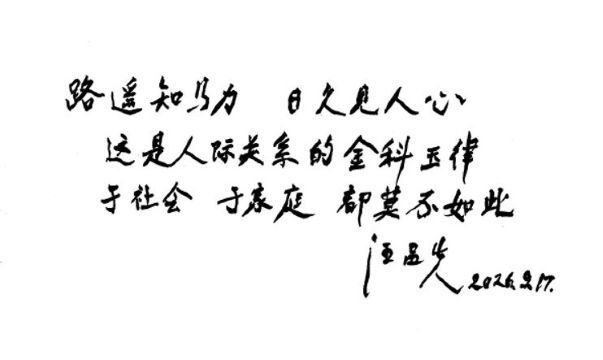 路遥知马力 日久见人心
这是人际关系的金科玉律
于社会 于家庭 都莫不如此
汪孟先 2026.2.17.